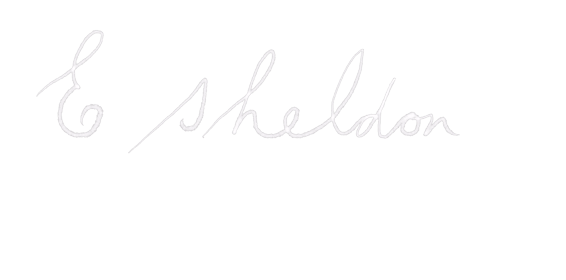 E Sheldon